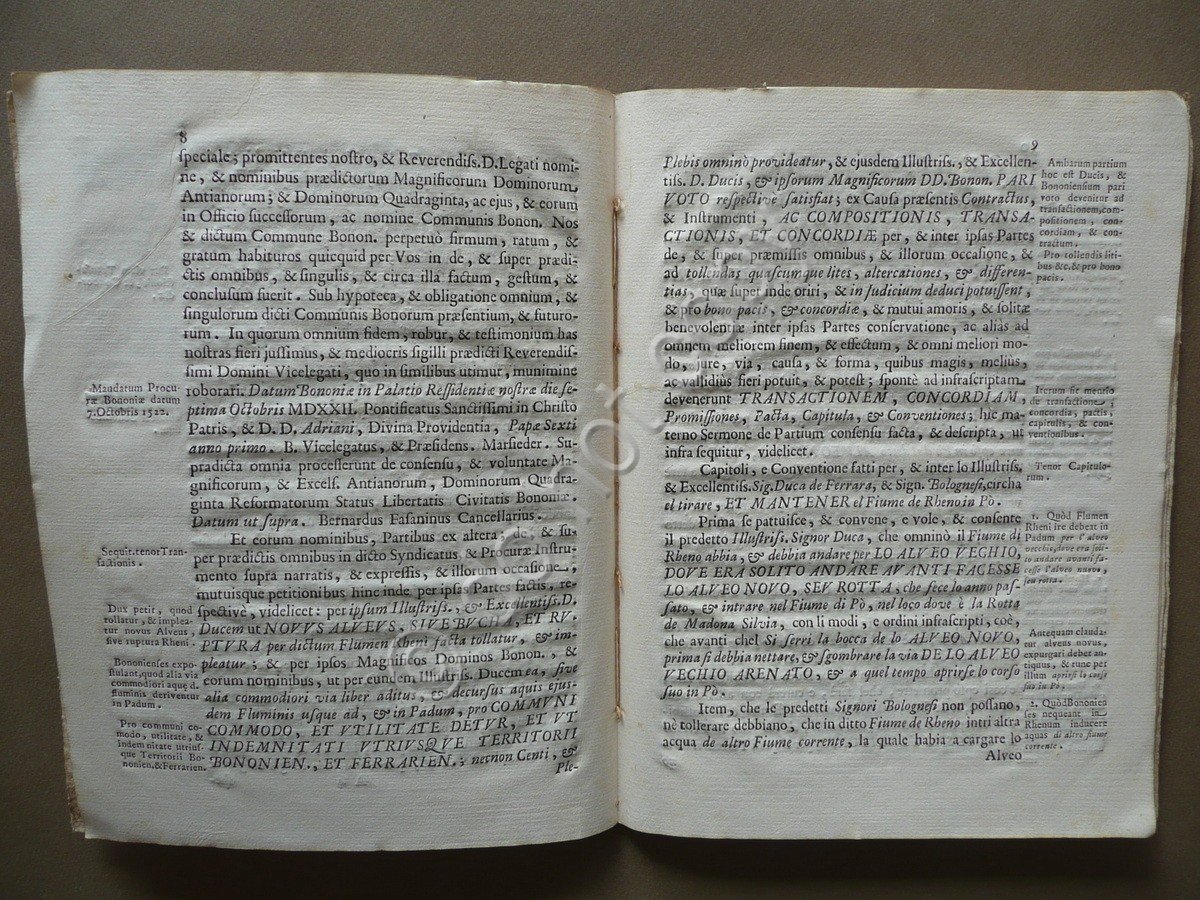 8
speciale; promittentes nostro, & Reverendiss. D. Legati nomi-
ne, & nominibus prædictorum Magnificorum Dominorum
Antianorum; & Dominorum Quadraginta, ac ejus, & eorum
in Officio successorum, ac nomine Communis Bonon. Nos
& dictum Commune Bonon. perpetuò firmum, ratum, &
gratum habituros quicquid per Vos in de, & super prædi-
ctis omnibus, & singulis, & circa illa factum, gestum, &
conclusum fuerit. Sub hypoteca, & obligatione omnium, &
singulorum dicti Communis Bonorum præsentium, & futuro-
rum. In quorum omnium fidem, robur, & testimonium has
nostras fieri jussimus, & mediocris sigilli prædicti Reverendis-
simi Domini Vicelegati, quo in similibus utimur, munimine
roborari. Datum Bononiæ in Palatio Residentiæ nostræ die se-
ptima Octobris MDXXII. Pontificatus Sanctissimi in Christo
Patris, & D. D. Adriani, Divina Providentia, Papæ Sexti
anno primo. B. Vicelegatus, & Præsidens. Marsieder. Su-
pradicta omnia processerunt de consensu, & voluntate Ma-
gnificorum, & Excels. Antianorum, Dominorum Quadra-
ginta Reformatorum Status Libertatis Civitatis Bononiæ.
Datum ut supra. Bernardus Fasaninus Cancellarius.
Et eorum nominibus, Partibus ex altera; de, & su-
per prædictis omnibus in dicto Syndicatus & Procuræ Instru-
mento supra narratis, & expressis, & illorum occasione,
mutuisque petitionibus hinc inde per ipsas Partes factis, re-
spectivè, videlicet: per ipsum Illustriss., & Excellentiss. D.
Ducem ut NOVUS ALVEUS, SIVE BUCHA, ET RU-
PTURA per dictum Flumen Rheni facta tollatur, & im-
pleatur; & per ipsos Magnificos Dominos Bonon., &
eorum nominibus, ut per eundem Illustriss. Ducem ea, sive
alia commodiori via liber aditus, & decursus aquis ejus-
dem Fluminis usque ad, & in Padum, pro COMMUNI
COMMODO, ET UTILITATE DETUR, ET UT
INDEMNITATI UTRIUSQUE TERRITORII
BONONIEN., ET FERRARIEN.; necnon Centi, &
Ple-
Mandatum Procu-
ræ Bononiæ datum
7. Octobris 1522.
Sequit. tenor Tran-
sactionis.
Dux petit, quod
tollatur, & implea-
tur novus Alveus,
sive ruptura Rheni.
Bononienses expo-
stulant, quod alia via
commodiori aquæ d.
fluminis deriventur
in Padum.
Pro communi co-
modo, utilitate, &
indemnitate utrius-
que Territorii Bo-
nonien. & Ferrarien.
9
Plebis omninò provideatur, & ejusdem Illustriss., & Excellen-
tiss. D. Ducis, & ipsorum Magnificorum DD. Bonon. PARI
VOTO respectivè satisfiat; ex Causa præsentis Contractus,
& Instrumenti, AC COMPOSITIONIS, TRANSA-
CTIONIS, ET CONCORDIÆ per, & inter ipsas Partes
de, & super præmissis omnibus, & illorum occasione, &
ad tollendas quascumque lites, altercationes, & differen-
tias, quæ super inde oriri, & in Judicium deduci potuissent,
& pro bono pacis, & concordiæ, & mutui amoris, & solitæ
benevolentiæ inter ipsas Partes conservatione, ac aliàs ad
omnem meliorem finem, & effectum, & omni meliori mo-
do, jure, via, causa, & forma, quibus magis, melius,
ac vallidiùs fieri potuit, & potest; spontè ad infrascriptam
devenerunt TRANSACTIONEM, CONCORDIAM,
Promissiones, Pacta, Capitula, & Conventiones; hic ma-
terno Sermone de Partium consensu facta, & descripta, ut
infra sequitur, videlicet.
Capitoli, e Conventione fatti per, & inter lo Illustriss.
& Excellentiss. Sig. Duca de Ferrara, & Sign. Bolognesi, circha
el tirare, ET MANTENER el Fiume de Rheno in Pò.
Prima se pattuisce, & convene, e vole, & consente
il predetto Illustriss. Signor Duca, che omninò il Fiume di
Rheno abbia, & debbia andare per LO ALVEO VECHIO,
DOVE ERA SOLITO ANDARE AVANTI FACESSE
LO ALVEO NOVO, SEU ROTTA, che fece lo anno pas-
sato, & intrare nel Fiume di Pò, nel loco dove è la Rotta
de Madona Silvia, con li modi, e ordini infrascripti, coè,
che avanti chel Si serri la bocca de lo ALVEO NOVO,
prima si debbia nettare, & sgombrare la via DE LO ALVEO
VECHIO ARENATO, & a quel tempo aprirse lo corso
suo in Pò.
Item, che le predetti Signori Bolognesi non possano,
nè tollerare debbiano, che in ditto Fiume de Rheno intri altra
acqua de altro Fiume corrente, la quale habia a cargare lo
Alveo
Ambarum partium
hoc est Ducis, &
Bononiensium pari
voto devenitur ad
transactionem, com-
positionem, con-
cordiam, & con-
tractum.
Pro tollendis liti-
bus &c. & pro bono
pacis.
Iterum fit mentio
de transactione,
concordia, pactis,
capitulis, & con-
ventionibus.
Tenor Capitulo-
rum.
1. Quòd Flumen
Rheni ire debeat in
Padum per l'alveo
vecchio, dove era soli-
to andare avanti fa-
cesse l'alveo nuovo,
seu rotta.
Antequam clauda-
tur alveus novus,
expurgari debet an-
tiquus, & tunc per
illum aprirse lo corso
suo in Pò.
2. Quòd Bononien-
ses nequeant in
Rhenum inducere
aquas di altro fiume
corrente.